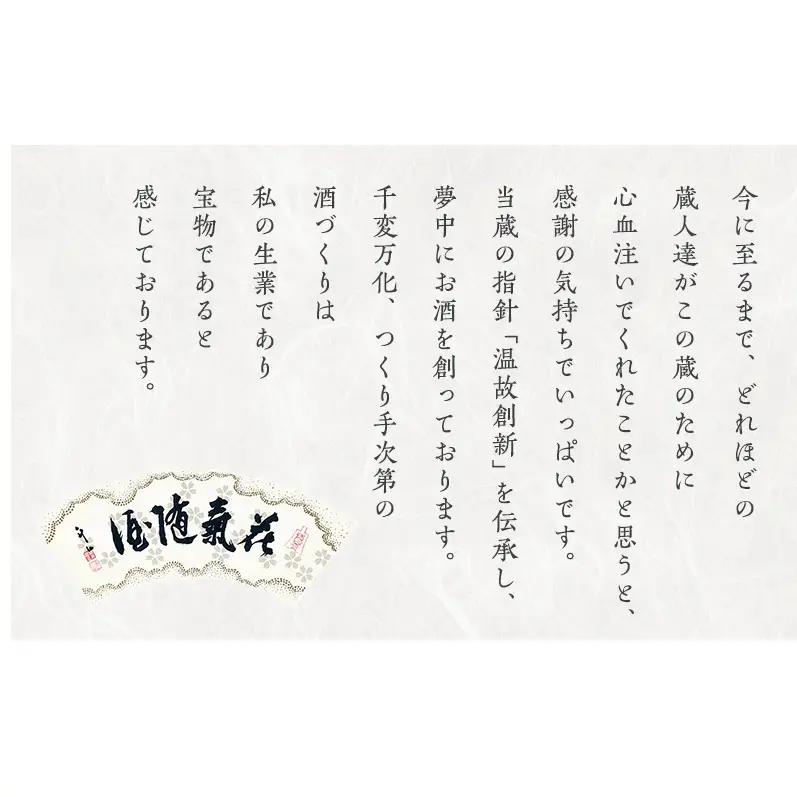 今に至るまで、どれほどの
蔵人達がこの蔵のために
心血注いでくれたことかと思うと、
感謝の気持ちでいっぱいです。
当蔵の指針「温故創新」を伝承し、
夢中にお酒を創っております。
千変万化、つくり手次第の
酒づくりは
私の生業であり
宝物であると
感じております。
花氣随酒